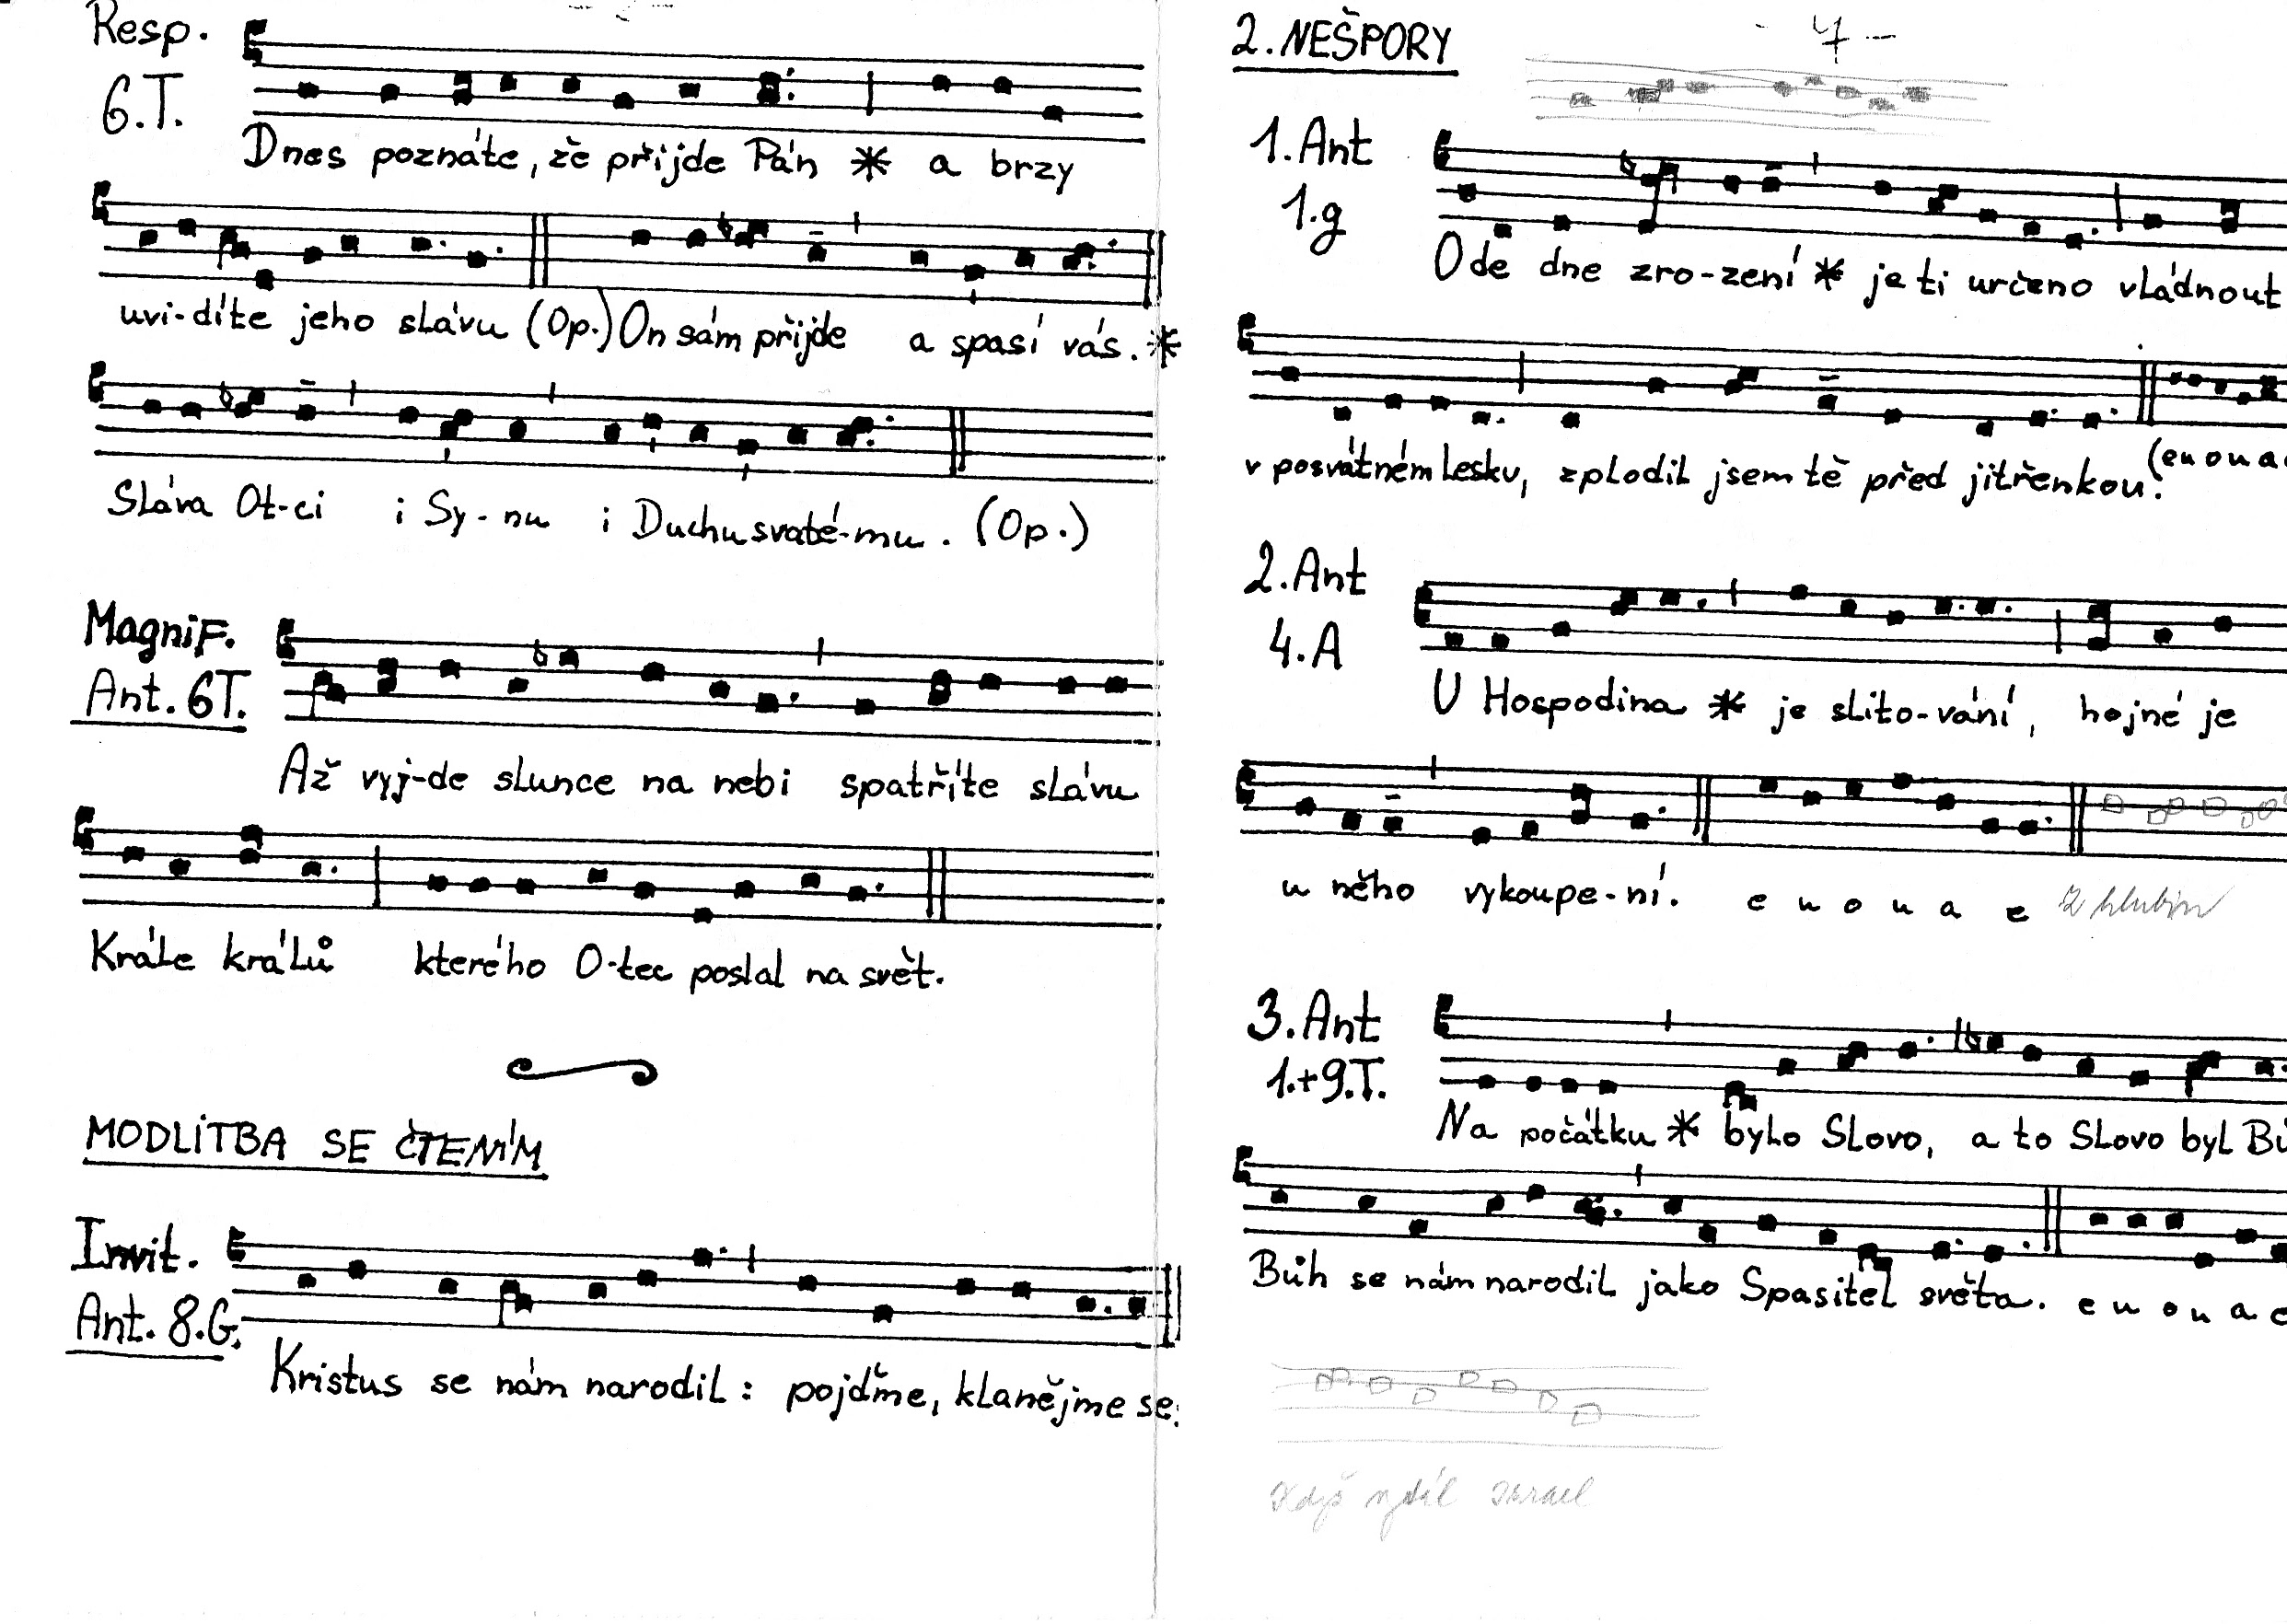 Resp.
6.T.
Dnes poznáte, že přijde Pán * a brzy
uvi-díte jeho slávu (Op.) On sám přijde a spasí vás. *
Sláva Ot-ci i Sy-nu i Duchu svaté-mu. (Op.)
Magnif.
Ant. 6T.
Až vyj-de slunce na nebi spatříte slávu
Krále králů kterého O-tec poslal na svět.
MODLITBA SE ČTENÍM
Invit.
Ant. 8.G.
Kristus se nám narodil: pojďme, klanějme se.
2. NEŠPORY
1. Ant
1.g
Ode dne zro-zení * je ti určeno vládnout
v posvátném lesku, zplodil jsem tě před jitřenkou. (e u o u a
2. Ant
4.A
U Hospodina * je slito-vání, hojné je
u něho vykoupe-ní. e u o u a e Z hlubin
3. Ant
1.+9.T.
Na počátku * bylo Slovo, a to Slovo byl Bů
Bůh se nám narodil jako Spasitel světa. e u o u a e
Když vyšel Izrael